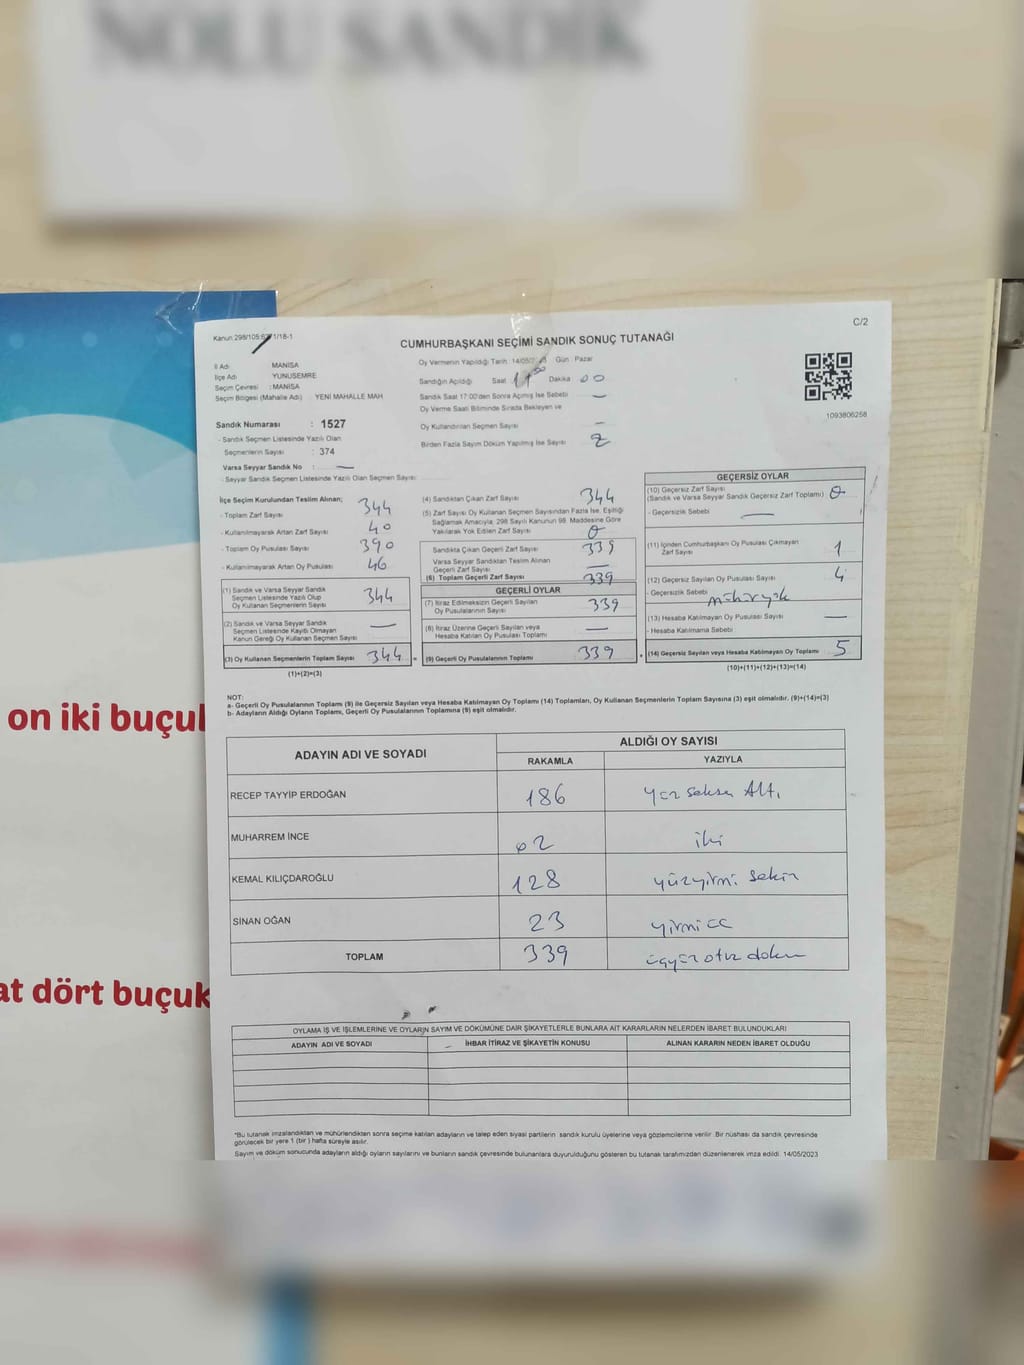 NOLU SANDIK
C/2
CUMHURBAŞKANI SEÇİMİ SANDIK SONUÇ TUTANAĞI
İl Adı : MANİSA
İlçe Adı : YUNUSEMRE
Seçim Çevresi : MANİSA
Seçim Bölgesi (Mahalle Adı) : YENİ MAHALLE MAH
Oy Vermenin Yapıldığı Tarih : Gün : Pazar
Sandığın Açıldığı Saat Dakika 00
Sandık Saat 17:00'den Sonra Açılmış İse Sebebi —
Oy Verme Saati Bitiminde Sırada Bekleyen ve
Oy Kullandırılan Seçmen Sayısı —
Birden Fazla Sayım Döküm Yapılmış İse Sayısı 2
1093806258
Sandık Numarası : 1527
- Sandık Seçmen Listesinde Yazılı Olan
Seçmenlerin Sayısı : 374
Varsa Seyyar Sandık No : —
- Seyyar Sandık Seçmen Listesinde Yazılı Olan Seçmen Sayısı:
İlçe Seçim Kurulundan Teslim Alınan;
- Toplam Zarf Sayısı 344
- Kullanılmayarak Artan Zarf Sayısı 40
- Toplam Oy Pusulası Sayısı 390
- Kullanılmayarak Artan Oy Pusulası 46
(1) Sandık ve Varsa Seyyar Sandık
Seçmen Listesinde Yazılı Olup
Oy Kullanan Seçmenlerin Sayısı 344
(2) Sandık ve Varsa Seyyar Sandık
Seçmen Listesinde Kaydı Olmayan
Kanun Gereği Oy Kullanan Seçmen Sayısı —
(3) Oy Kullanan Seçmenlerin Toplam Sayısı 344 =
(1)+(2)=(3)
(4) Sandıktan Çıkan Zarf Sayısı 344
(5) Zarf Sayısı Oy Kullanan Seçmen Sayısından Fazla İse, Eşitliği
Sağlamak Amacıyla; 298 Sayılı Kanunun 98. Maddesine Göre
Yakılarak Yok Edilen Zarf Sayısı 0
Sandıkta Çıkan Geçerli Zarf Sayısı 339
Varsa Seyyar Sandıktan Teslim Alınan
Geçerli Zarf Sayısı —
(6) Toplam Geçerli Zarf Sayısı 339
GEÇERLİ OYLAR
(7) İtiraz Edilmeksizin Geçerli Sayılan
Oy Pusulalarının Sayısı 339
(8) İtiraz Üzerine Geçerli Sayılan veya
Hesaba Katılan Oy Pusulası Toplamı —
(9) Geçerli Oy Pusulalarının Toplamı 339 +
GEÇERSİZ OYLAR
(10) Geçersiz Zarf Sayısı
(Sandık ve Varsa Seyyar Sandık Geçersiz Zarf Toplamı) 0
- Geçersizlik Sebebi —
(11) İçinden Cumhurbaşkanı Oy Pusulası Çıkmayan
Zarf Sayısı 1
(12) Geçersiz Sayılan Oy Pusulası Sayısı 4
- Geçersizlik Sebebi mühür yok
(13) Hesaba Katılmayan Oy Pusulası Sayısı —
- Hesaba Katılmama Sebebi
(14) Geçersiz Sayılan veya Hesaba Katılmayan Oy Toplamı 5
(10)+(11)+(12)+(13)=(14)
NOT:
a- Geçerli Oy Pusulalarının Toplamı (9) ile Geçersiz Sayılan veya Hesaba Katılmayan Oy Toplamı (14) Toplamları, Oy Kullanan Seçmenlerin Toplam Sayısına (3) eşit olmalıdır. (9)+(14)=(3)
b- Adayların Aldığı Oyların Toplamı, Geçerli Oy Pusulalarının Toplamına (9) eşit olmalıdır.
ADAYIN ADI VE SOYADI
ALDIĞI OY SAYISI
RAKAMLA YAZIYLA
RECEP TAYYİP ERDOĞAN 186 yüz seksen Altı
MUHARREM İNCE 02 iki
KEMAL KILIÇDAROĞLU 128 yüzyirmi sekiz
SİNAN OĞAN 23 yirmi
TOPLAM 339 üçyüz otuz dokuz
OYLAMA İŞ VE İŞLEMLERİNE VE OYLARIN SAYIM VE DÖKÜMÜNE DAİR ŞİKAYETLERLE BUNLARA AİT KARARLARIN NELERDEN İBARET BULUNDUKLARI
ADAYIN ADI VE SOYADI İHBAR İTİRAZ VE ŞİKAYETİN KONUSU ALINAN KARARIN NEDEN İBARET OLDUĞU
*Bu tutanak imzalandıktan ve mühürlendikten sonra seçime katılan adayların ve talep eden siyasi partilerin sandık kurulu üyelerine veya gözlemcilerine verilir. Bir nüshası da sandık çevresinde
görülecek bir yere 1 (bir) hafta süreyle asılır.
Sayım ve döküm sonucunda adayların aldığı oyların sayılarını ve bunların sandık çevresinde bulunanlara duyurulduğunu gösteren bu tutanak tarafımızdan düzenlenerek imza edildi. 14/05/2023
on iki buçuk
at dört buçuk